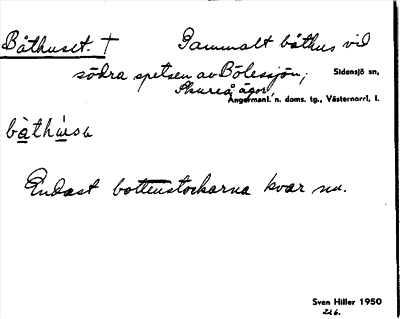 Båthuset. † Gammalt båthus vid
södra spetsen av Bölessjön; Sidensjö sn,
ägor,
Ångermanl. n. doms. tg., Västernorrl. l.
Endast bottenstockarna kvar nu.
Sven Hiller 1950